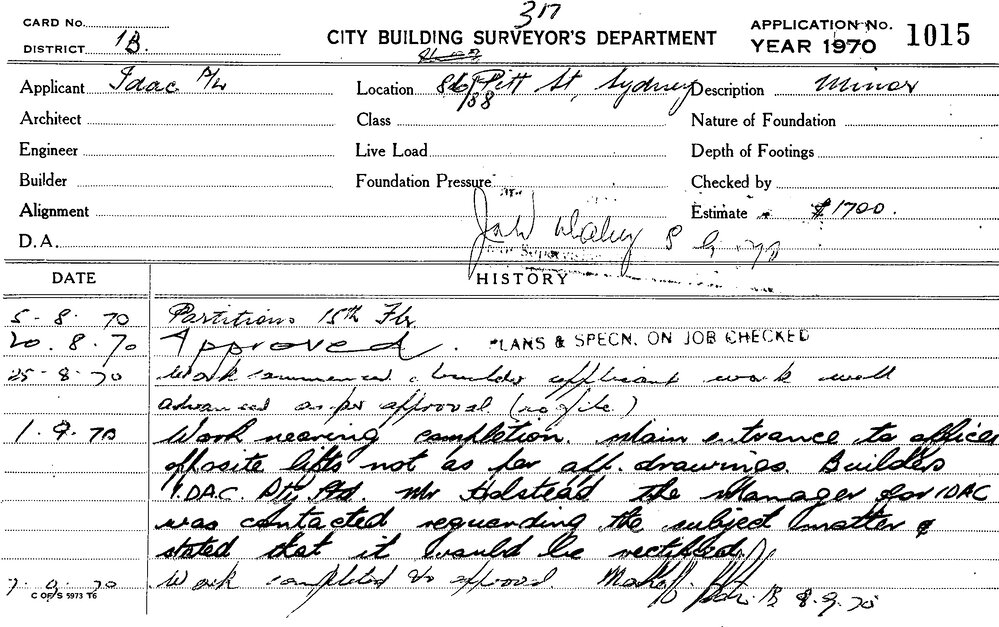 317
CARD No.
DISTRICT 1B.
CITY BUILDING SURVEYOR'S DEPARTMENT
APPLICATION No. 1015
YEAR 1970
Applicant Idac P/L Location Pitt St, Sydney Description Minor
Architect Class Nature of Foundation
Engineer Live Load Depth of Footings
Builder Foundation Pressure Checked by
Alignment Estimate $1700.
D.A.
DATE HISTORY
5-8-70 Partitions 15th Flr
20.8.70 Approved. PLANS & SPECN. ON JOB CHECKED
25-8-70 Work commenced builder applicant work well
advanced as per approval (no file)
1.9.70 Work nearing completion. Main entrance to offices
opposite lifts not as per app. drawings. Builders
I.DAC. Pty Ltd. Mr Holstead the Manager for IDAC
was contacted reguarding the subject matter &
stated that it would be rectified.
7.9.70 Work completed to approval. 8.9.70
C OF S 5973 T6